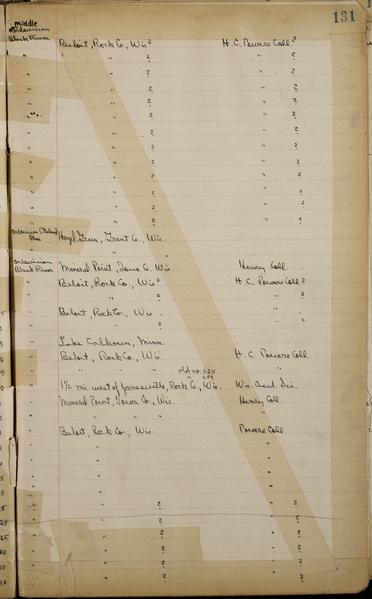 131
Middle
Ordovician
Black River Beloit, Rock Co., Wis? H. C. Powers Coll.?
" " ? " ?
" " ? " ?
" " ? " ?
" " ? " ?
" " ? " ?
" " ? " ?
" " ? " ?
" " ? " ?
" " ? " ?
" " ? " ?
" " ? " ?
" " ? " ?
Hazel Green, Grant Co., Wis.
" "
Ordovician
Black River Mineral Point, Iowa Co. Wis Henry Coll.
" Beloit, Rock Co., Wis? H. C. Powers Coll?
" " ? " ?
" Beloit Rock Co., Wis. "
" " ? " ?
" Lake Calhoun, Minn.
" Beloit, Rock Co., Wis. H. C. Powers Coll.
" " " " old no. 325 "
" 1½ mi. west of Janesville, Rock Co., Wis. Wis. Acad. Sci.
" Mineral Point, Iowa Co., Wis. Henry Coll.
" " "
" Beloit, Rock Co., Wis. Powers Coll
" " "
" " "
" " "
" " "
" " ? " ?
" " ? " ?
" " ? " ?
" " ? " ?
" " ? " ?
" " ? " ?